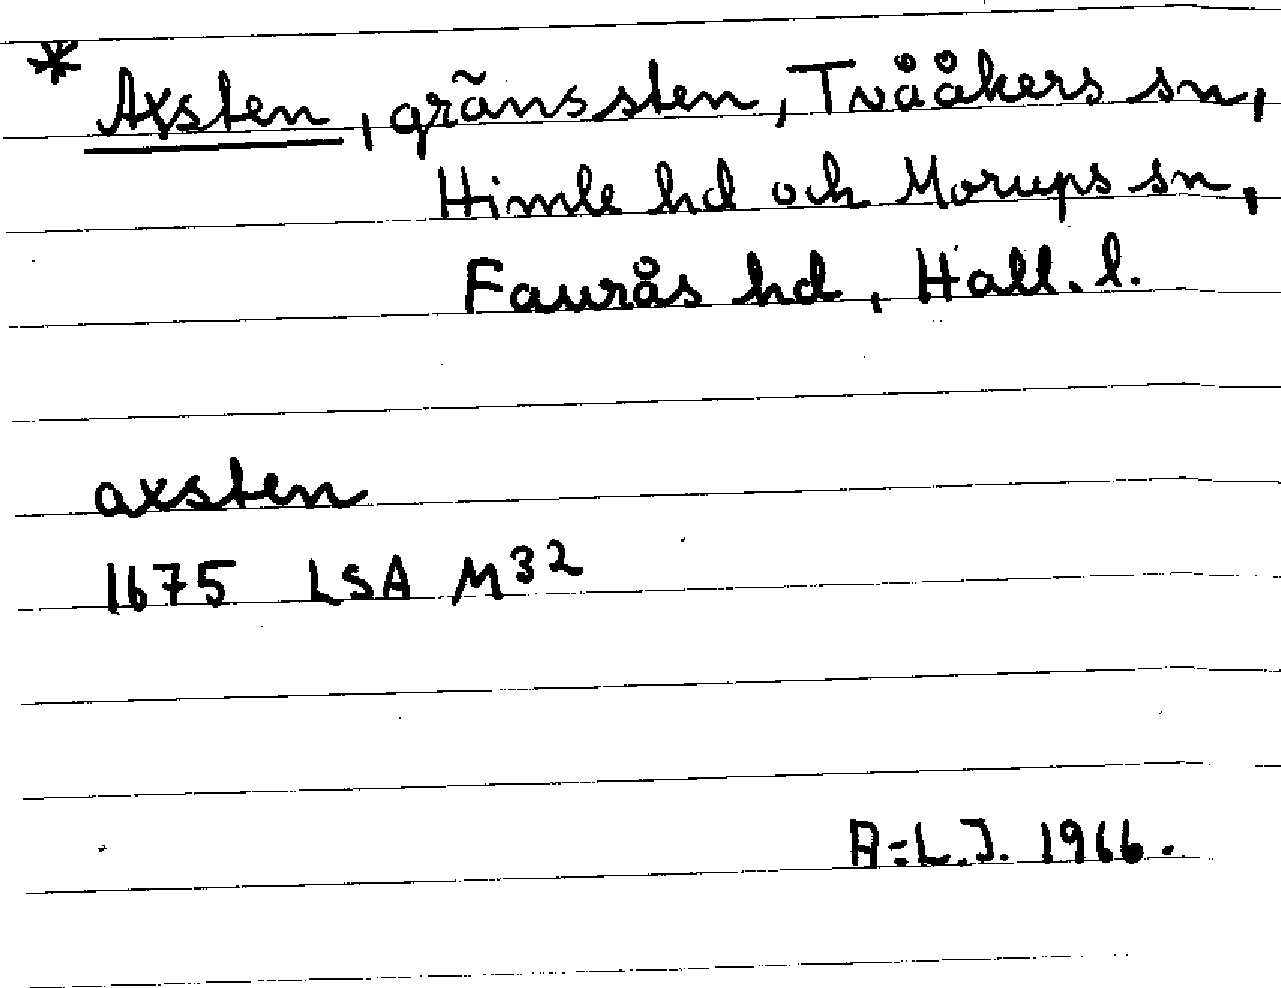 * Axsten, gränssten, Tvååkers sn,
Himle hd och Morups sn,
Faurås hd, Hall. l.
axsten
1675 LSA M32
A-L.J. 1966.